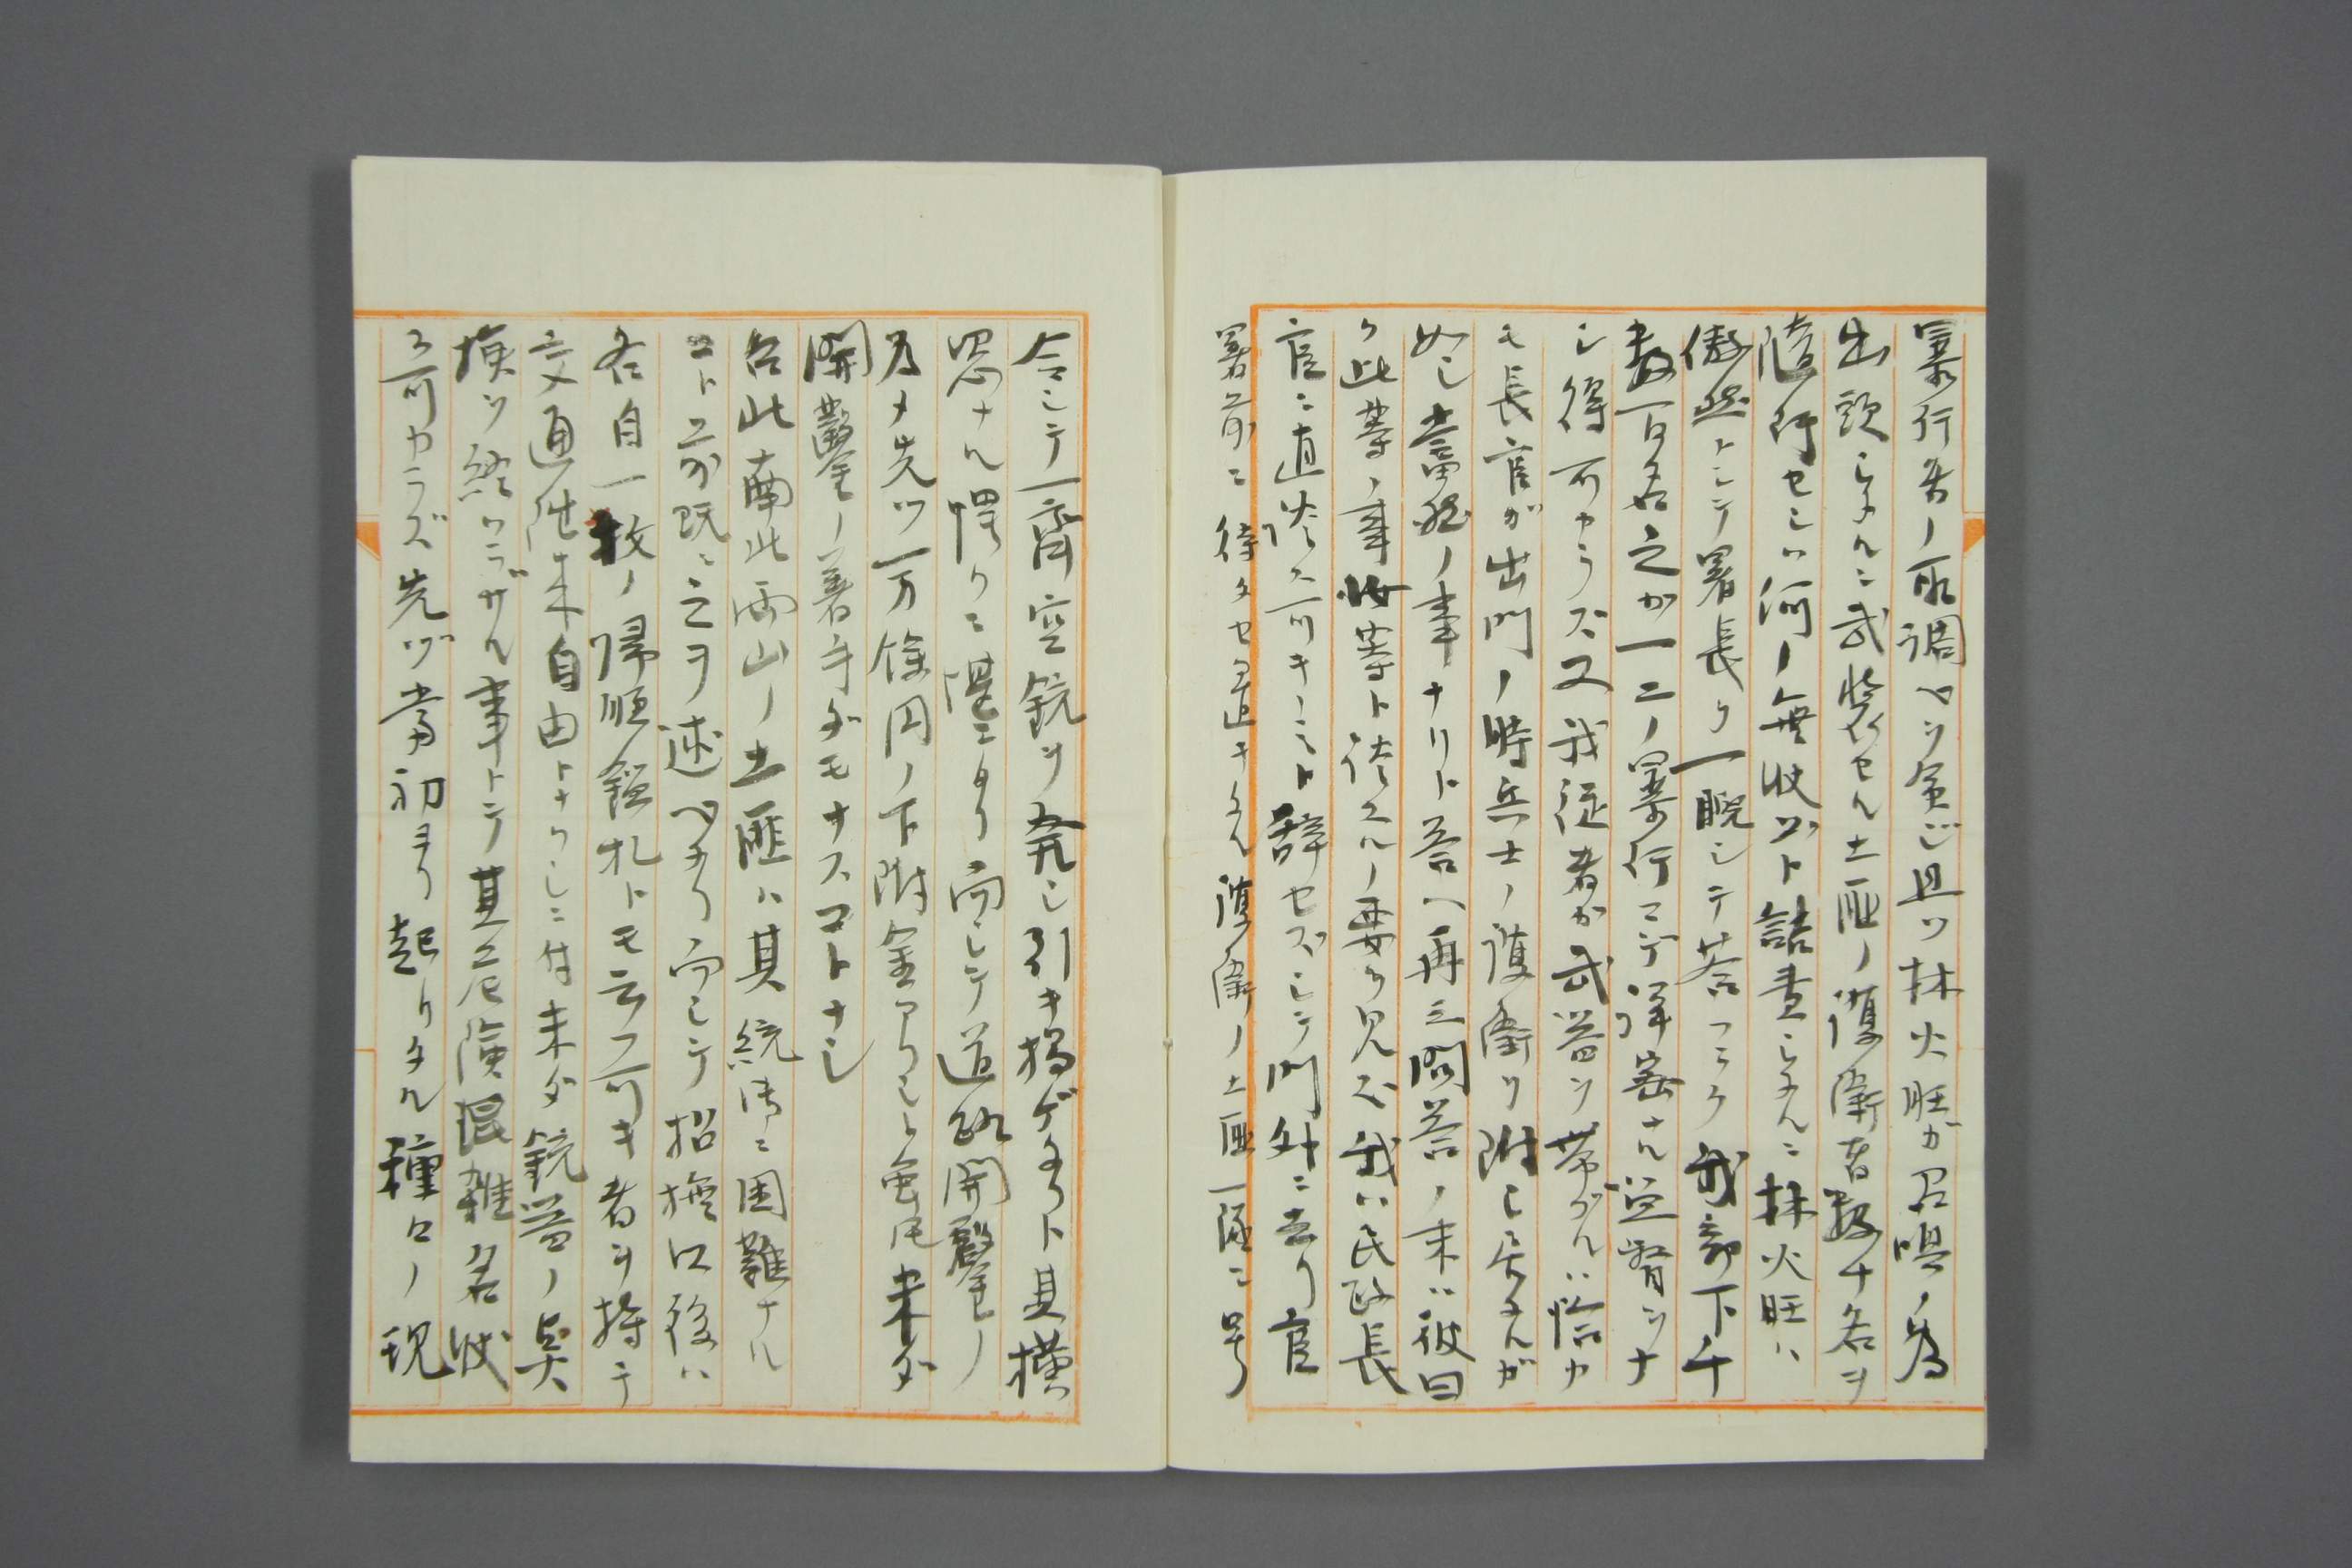 暴行者ノ取調ベヲ命ジ且ツ林火旺ガ召喚ノ為
出頭シタルニ武装セル土匪ノ護衛者数十名ヲ
随行セシハ何ノ無状ゾト詰責シタルニ林火旺ハ
傲然トシテ署長ヲ一睨シテ答フラク我部下千
数百名之カ一二ノ暴行マデ詳密ナル監督ヲナ
シ得可カラズ又我従者カ武器ヲ帯ブルハ恰カ
モ長官ガ出門ノ時兵士ノ護衛ヲ附シ居タルガ
如シ当然ノ事ナリト答ヘ再三問答ノ末ハ彼曰
ク此等ノ事汝等ト談スルノ要ヲ見ズ我ハ民政長
官ニ直談ス可キノミト辞セズシテ門外ニ去リ官
署前ニ待タセ置キタル護衛ノ土匪一隊ニ号
令シテ一斉空銃ヲ発シ引キ揚ゲタリト其横
恣ナル憚リニ堪エタリ而シテ道路開鑿ノ
為メ先ツ一万餘円ノ下附金アリシト雖モ未ダ
開鑿ノ着手ダモナスコトナシ
台北南北両山ノ土匪ハ其統御ニ困難ナル
コト前既ニ之ヲ述ベタリ而シテ招撫以後ハ
各自一枚ノ帰順鑑札トモ云フ可キ者ヲ持テ
交通往来自由トナリシニ付未ダ銃器ノ臭
煙ヲ絶タラザル事トテ其危険混雑名状
ス可カラズ先ヅ当初ヨリ起リタル種々ノ現